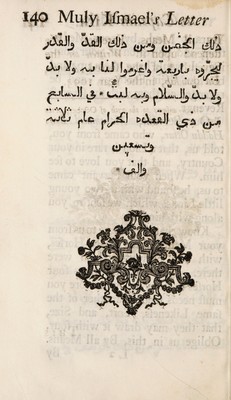 140 Muly Iſmael's Letter
ذلك الجفن ومن ذلك القدّ والقدر
بأربعة واغرموا لنا به ولا بدّ
ولا بدّ والسّلام وبه كتب في السابع
من ذي القعدة الحرام عام ثمانية
وتسعين
والف